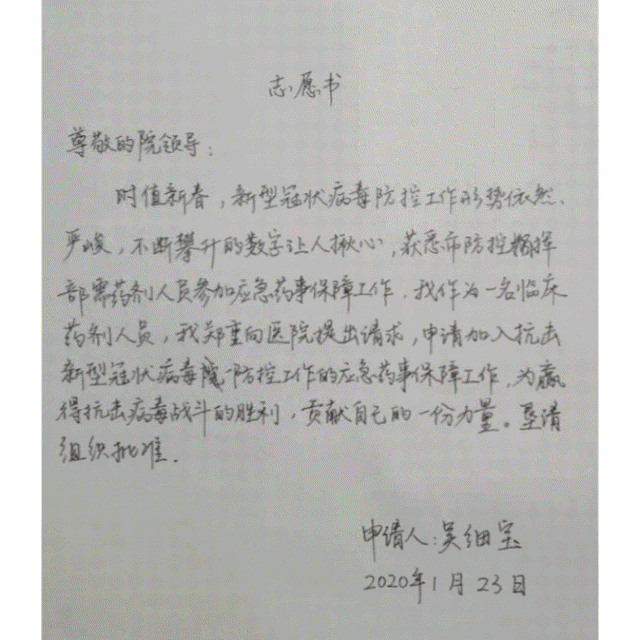 志愿书
尊敬的院领导:
时值新春,新型冠状病毒防控工作形势依然
严峻,不断攀升的数字让人揪心,获悉市防控指挥
部需药剂人员参加应急药事保障工作.我作为一名临床
药剂人员,我郑重向医院提出请求,申请加入抗击
新型冠状病毒一防控工作的应急药事保障工作,为赢
得抗击病毒战斗的胜利,贡献自己的一份力量。恳请
组织批准.
申请人:吴细宝
2020年1月23日